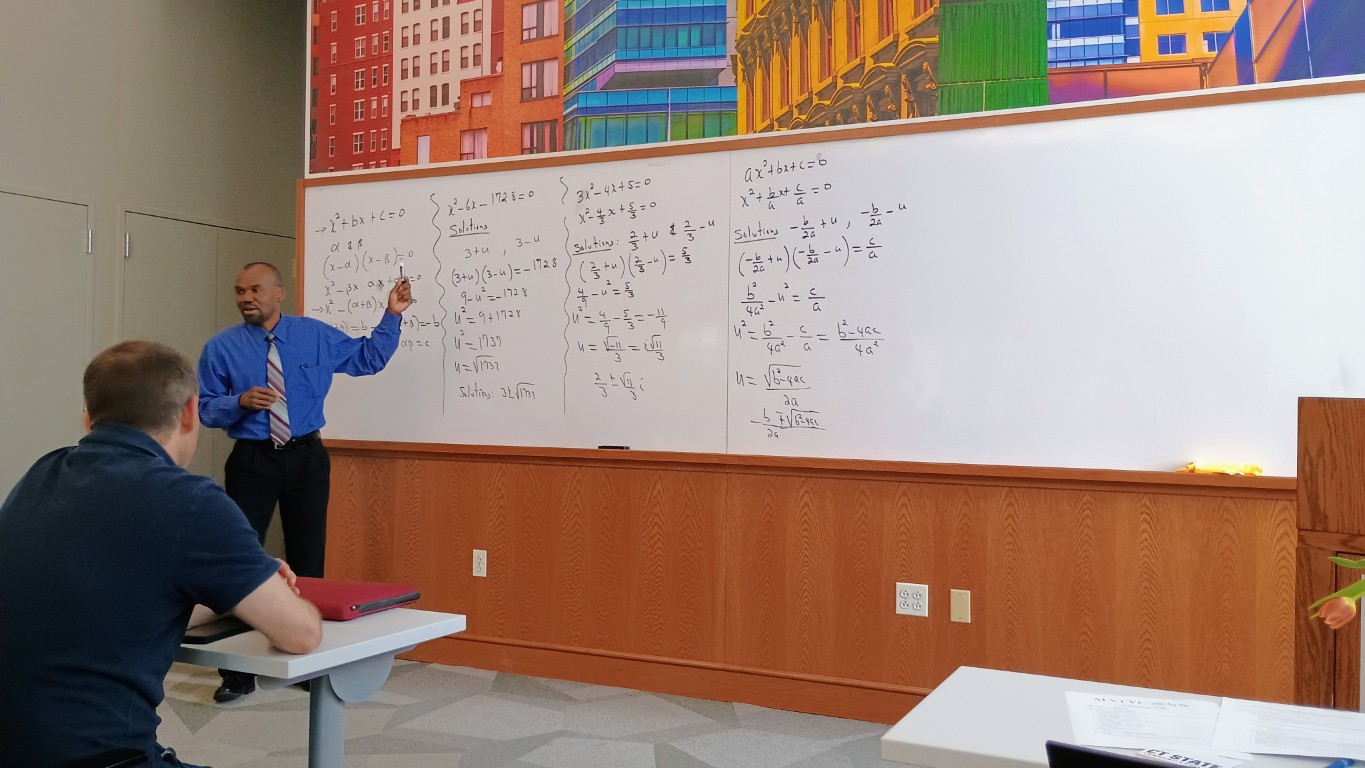 → x² + bx + c = 0
α & β
(x-α)(x-β) = 0
x² - βx
→ x² - (α+β)x
= -b
αβ = c
x² - 6x - 1728 = 0
Solutions
3+u , 3-u
(3+u)(3-u) = -1728
9 - u² = -1728
u² = 9 + 1728
u² = 1737
u = √1737
Solutions: 3 ± √1737
3x² - 4x + 5 = 0
x² - 4/3 x + 5/3 = 0
Solutions: 2/3 + u & 2/3 - u
(2/3 + u)(2/3 - u) = 5/3
4/9 - u² = 5/3
u² = 4/9 - 5/3 = -11/9
u = √-11/3 = i√11/3
2/3 ± √11/3 i
ax² + bx + c = 0
x² + b/a x + c/a = 0
Solutions -b/2a + u , -b/2a - u
(-b/2a + u)(-b/2a - u) = c/a
b²/4a² - u² = c/a
u² = b²/4a² - c/a = b²-4ac/4a²
u = √b²-4ac/2a
-b/2a ∓ √b²-4ac
CT STATE